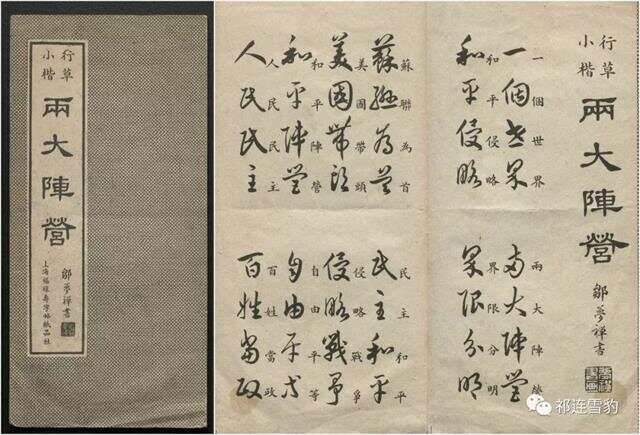 行草
小楷
兩大陣營
鄒夢禪書
上海福祿壽字帖紙品社
行草
小楷
兩大陣營
鄒夢禪書
一個世界
一個世界
兩大陣營
兩大陣營
和平侵略
和平侵略
界限分明
界限分明
蘇聯為首
蘇聯為首
民主和平
民主和平
美國帶頭
美國帶頭
侵略戰爭
侵略戰爭
和平陣營
和平陣營
自由平等
自由平等
人民民主
人民民主
百姓當政
百姓當政
祁连雪豹